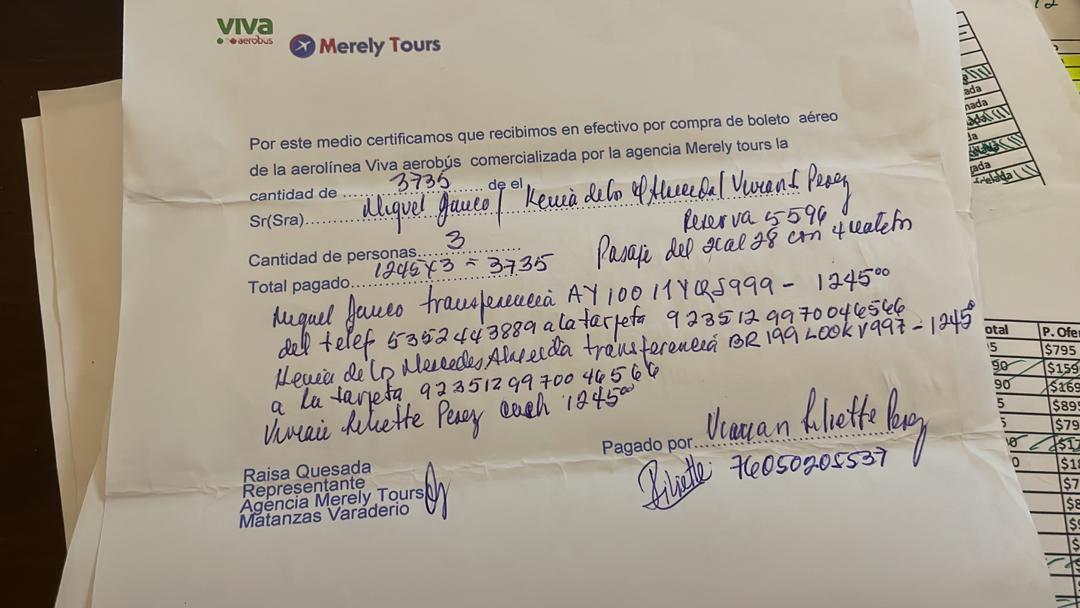 viva
aerobus
Merely Tours
Por este medio certificamos que recibimos en efectivo por compra de boleto aéreo
de la aerolínea Viva aerobús comercializada por la agencia Merely tours la
cantidad de 3735 de el
Sr(Sra) Miguel / Kenia de los Almeida / Perez
Reserva 5596
Cantidad de personas 3
Pasaje del al 28 con
Total pagado 1245 x 3 = 3735
Miguel transferencia AY10011YQS999 - 1245⁰⁰
del telef 5352443889 a la tarjeta 9235129970046566
Kenia de los Mercedes Almeida transferencia BR199LOOKV997 - 1245⁰
a la tarjeta 9235129970046566
Liliette Perez cash 1245⁰⁰
Pagado por Liliette Perez
Liliette 76050205537
Raisa Quesada
Representante
Agencia Merely Tours
Matanzas Varaderio
otal P. Ofer
$795
90 $159
90 $169
$895
$79